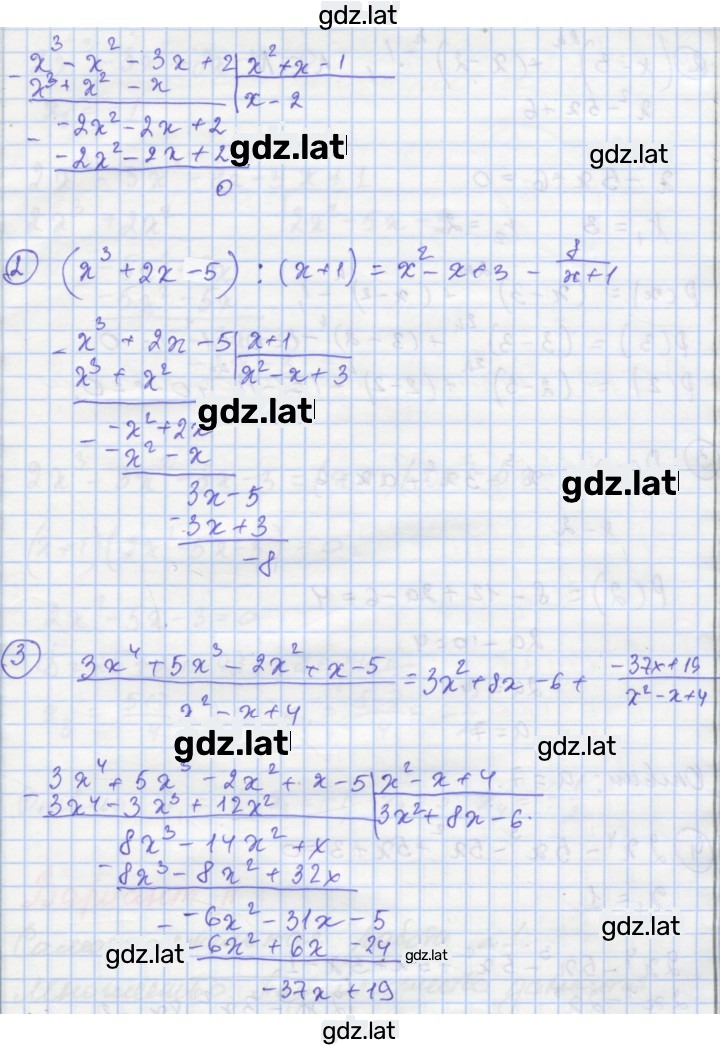 gdz.lat
x³ - x² - 3x + 2 | x² + x - 1
- x³ + x² - x | x - 2
-2x² - 2x + 2
- -2x² - 2x + 2 gdz.lat gdz.lat
0
2 (x³ + 2x - 5) : (x + 1) = x² - x + 3 - 8/(x+1)
x³ + 2x - 5 | x + 1
- x³ + x² | x² - x + 3
gdz.lat
-x² + 2x
- -x² - x
gdz.lat
3x - 5
- 3x + 3
-8
3 (3x⁴ + 5x³ - 2x² + x - 5)/(x² - x + 4) = 3x² + 8x - 6 + (-37x + 19)/(x² - x + 4)
gdz.lat gdz.lat
3x⁴ + 5x³ - 2x² + x - 5 | x² - x + 4
- 3x⁴ - 3x³ + 12x² | 3x² + 8x - 6
8x³ - 14x² + x
- 8x³ - 8x² + 32x
-6x² - 31x - 5
gdz.lat
- -6x² + 6x - 24
gdz.lat gdz.lat
-37x + 19
gdz.lat